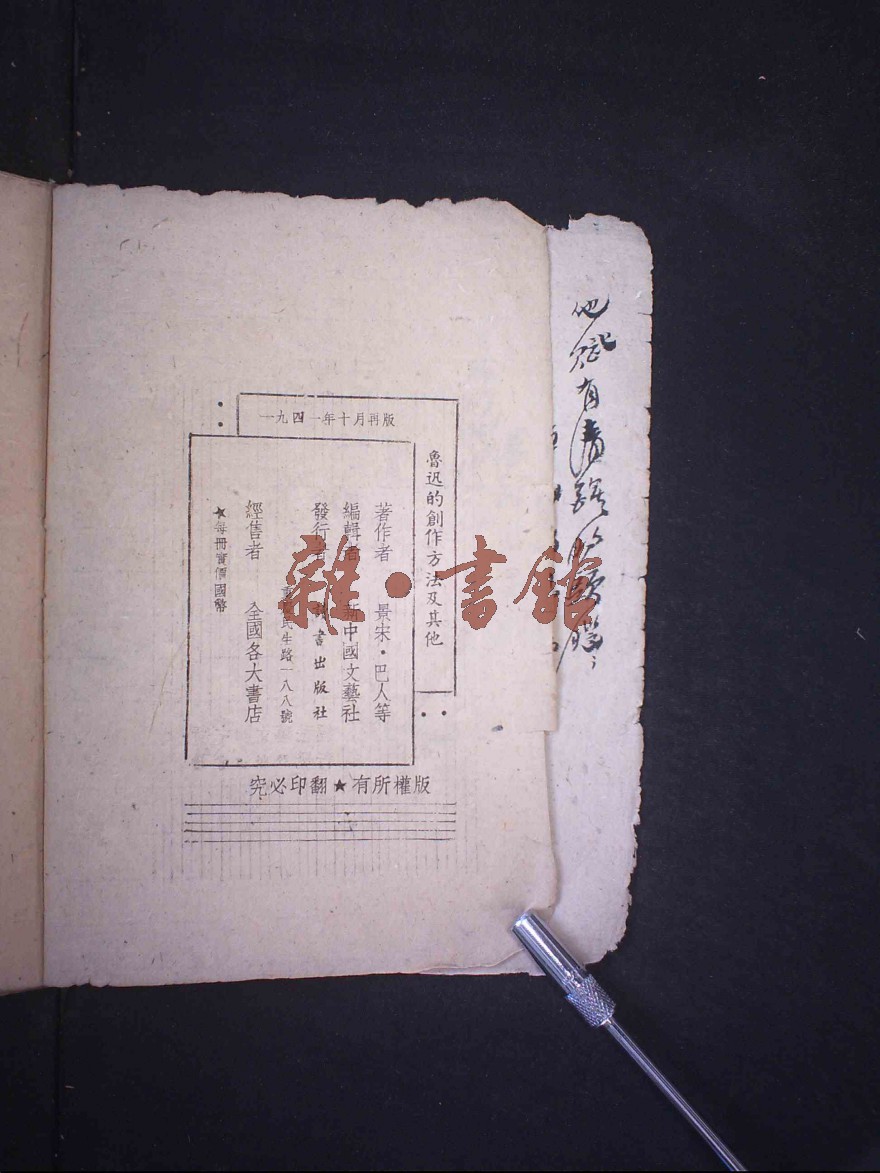 一九四一年十月再版
魯迅的創作方法及其他
著作者 景宋・巴人等
編輯者 新中國文藝社
發行者 讀書出版社
重慶民生路一八八號
經售者 全國各大書店
★每冊實價國幣
版權所有★翻印必究
雜・書館
有清